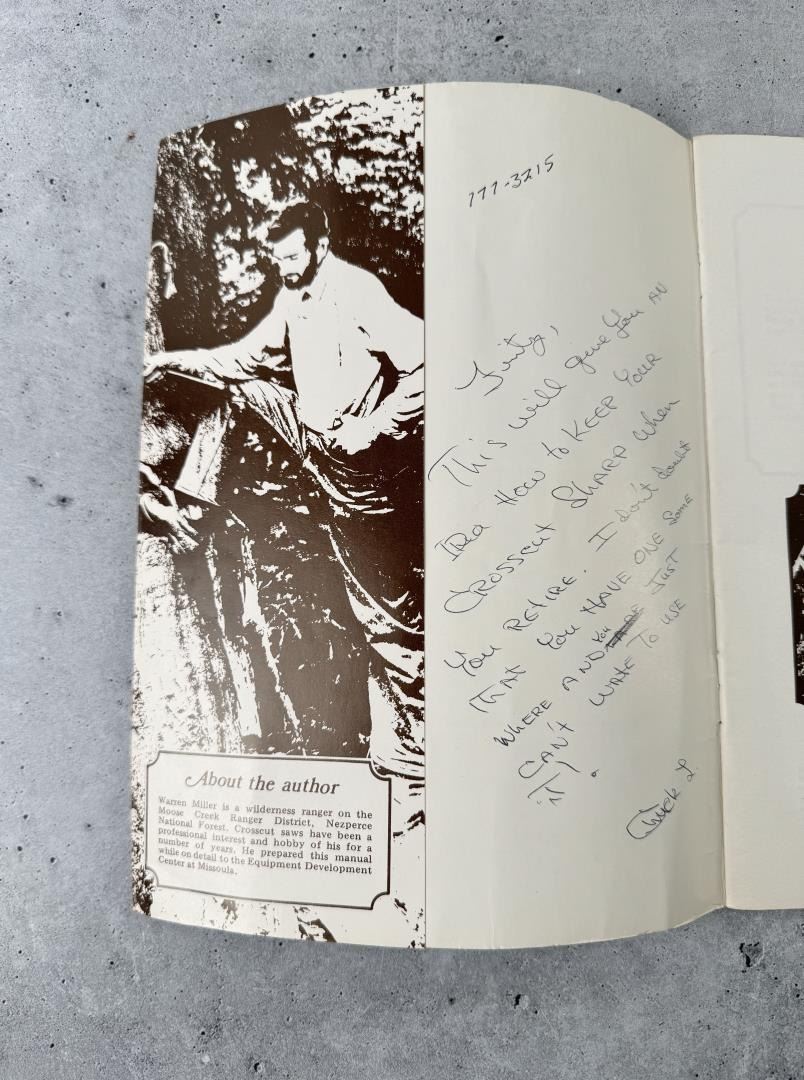 About the author
Warren Miller is a wilderness ranger on the
Moose Creek Ranger District, Nezperce
National Forest. Crosscut saws have been a
professional interest and hobby of his for a
number of years. He prepared this manual
while on detail to the Equipment Development
Center at Missoula.
777-3215
This will give You AN
IDEA How to KEEP YOUR
CROSSCUT SHARP When
You RETIRE. I don't doubt
THAT You HAVE ONE Some
WHERE AND You JUST
CAN'T WAITE TO USE
iT.
Chuck L.